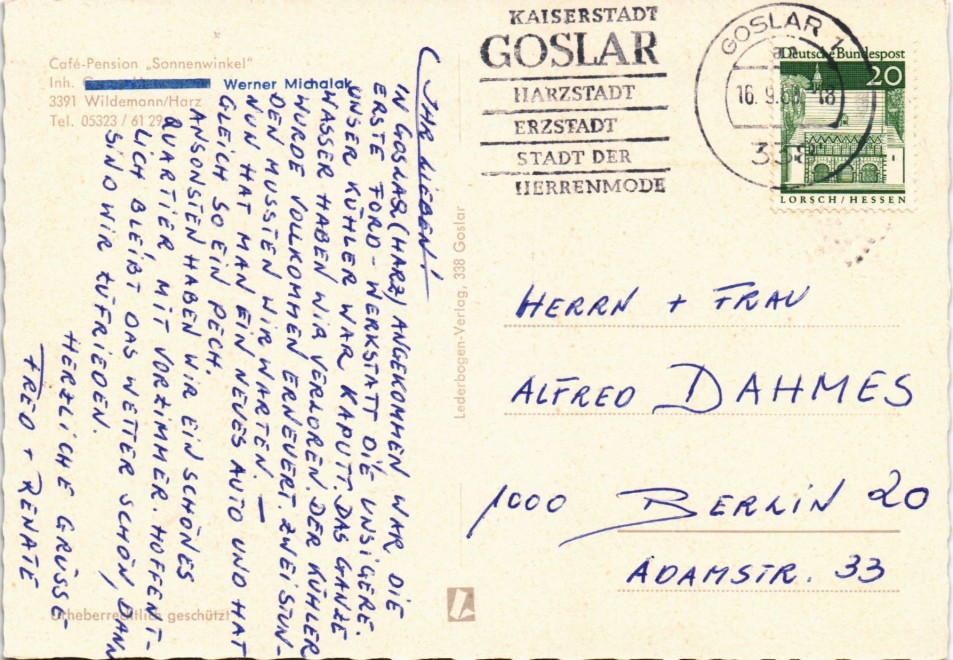 Café-Pension „Sonnenwinkel"
Inh. Werner Michalak
3391 Wildemann/Harz
Tel. 05323 / 61 29
IHR LIEBEN!
IN GOSLAR (HARZ) ANGEKOMMEN WAR DIE
ERSTE FORD-WERKSTATT DIE UNSIGERE.
UNSER KÜHLER WAR KAPUTT. DAS GANZE
WASSER HABEN WIR VERLOREN. DER KÜHLER
WURDE VOLLKOMMEN ERNEUERT. ZWEI STUN-
DEN MUSSTEN WIR WARTEN. —
NUN HAT MAN EIN NEUES AUTO UND HAT
GLEICH SO EIN PECH.
ANSONSTEN HABEN WIR EIN SCHÖNES
QUARTIER, MIT VORZIMMER. HOFFENT-
LICH BLEIBT DAS WETTER SCHÖN, DANN
SIND WIR ZUFRIEDEN.
HERZLICHE GRÜSSE-
FRED + RENATE
Urheberrechtlich geschützt
Lederbogen-Verlag, 338 Goslar
KAISERSTADT
GOSLAR
HARZSTADT
ERZSTADT
STADT DER
HERRENMODE
GOSLAR 1
16. 9. -18
338
Deutsche Bundespost
20
LORSCH/HESSEN
HERRN + FRAU
ALFRED DAHMES
1000 BERLIN 20
ADAMSTR. 33